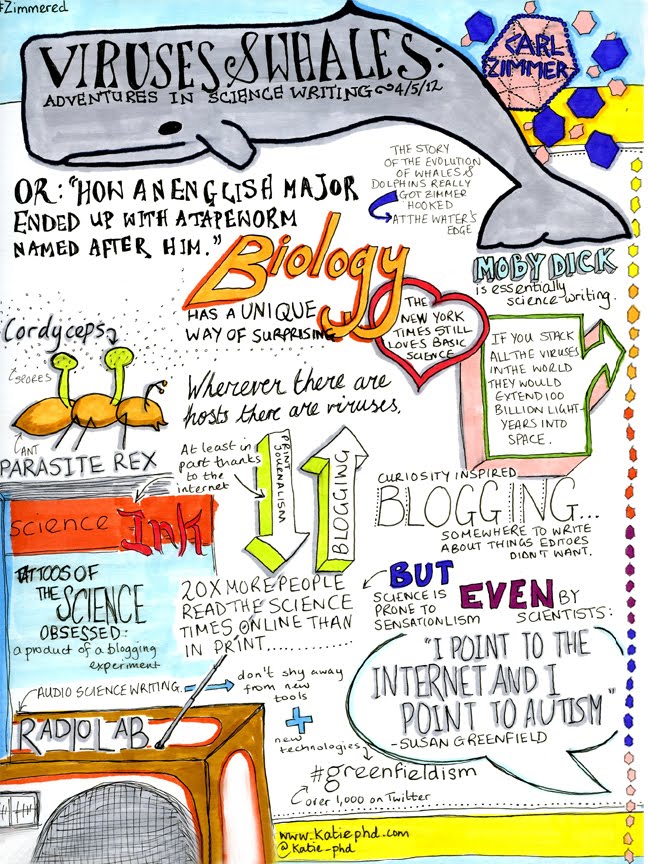 #Zimmered
VIRUSES & WHALES:
ADVENTURES IN SCIENCE WRITING ~ 4/5/12
CARL
ZIMMER
THE STORY
OF THE EVOLUTION
OF WHALES &
DOLPHINS REALLY
GOT ZIMMER
HOOKED
AT THE WATER'S
EDGE
OR: "HOW AN ENGLISH MAJOR
ENDED UP WITH A TAPEWORM
NAMED AFTER HIM."
Biology
HAS A UNIQUE
WAY OF SURPRISING
MOBY DICK
is essentially
science-writing.
THE
NEW YORK
TIMES STILL
LOVES BASIC
SCIENCE
IF YOU STACK
ALL THE VIRUSES
IN THE WORLD
THEY WOULD
EXTEND 100
BILLION LIGHT-
YEARS INTO
SPACE.
Cordyceps
SPORES
ANT
PARASITE REX
Wherever there are
hosts there are viruses.
At least in
part thanks
to the
internet
PRINT
JOURNALISM
BLOGGING
CURIOSITY INSPIRED
BLOGGING...
SOMEWHERE TO WRITE
ABOUT THINGS EDITORS
DIDN'T WANT.
science Ink
TATTOOS OF
THE SCIENCE
OBSESSED:
a product of a blogging
experiment
20X MORE PEOPLE
READ THE SCIENCE
TIMES ONLINE THAN
IN PRINT..............
BUT
SCIENCE IS
PRONE TO
SENSATIONALISM
EVEN BY
SCIENTISTS:
"I POINT TO THE
INTERNET AND I
POINT TO AUTISM"
-SUSAN GREENFIELD
AUDIO SCIENCE WRITING.
don't shy away
from new
tools
+
new
technologies
RADIOLAB
#greenfieldism
over 1,000 on Twitter
www.katiephd.com
@katie_phd